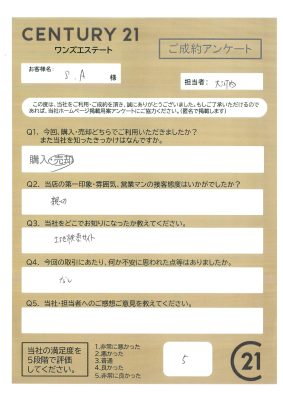 CENTURY 21
ワンズエステート
ご成約アンケート
お客様名:
S.A
様
担当者:
この度は、当社をご利用・ご成約を頂き、誠にありがとうございました。もしご了承いただけるので
あれば、当社ホームページ掲載用案アンケートにご協力ください。(匿名で掲載します)
Q1. 今回、購入・売却どちらでご利用いただきましたか?
また当社を知ったきっかけはなんですか。
購入・売却
Q2. 当店の第一印象・雰囲気、営業マンの接客態度はいかがでしたか?
親切
Q3. 当社をどこでお知りになったか教えてください。
サイト
Q4. 今回の取引にあたり、何か不安に思われた点等はありましたか。
なし
Q5. 当社・担当者へのご感想ご意見を教えてください。
当社の満足度を
5段階で評価
してください。
1.非常に悪かった
2.悪かった
3.普通
4.良かった
5.非常に良かった
5
C21